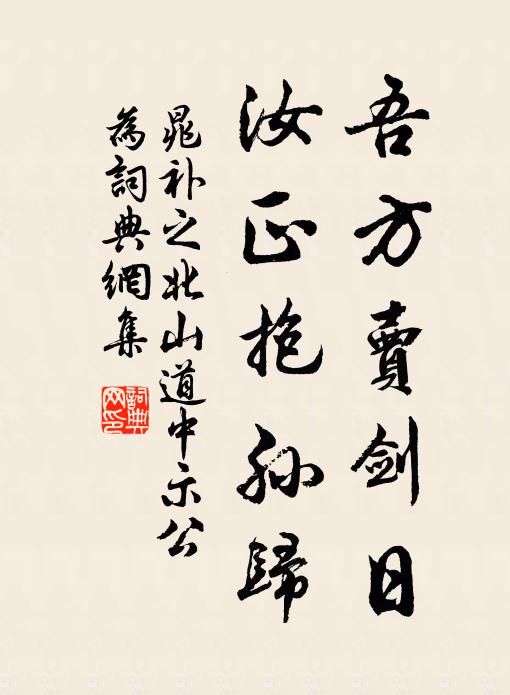 吾方賣劍日
汝正抱孫歸
晁补之北山道中示公
為詞典網集
詞典
网印